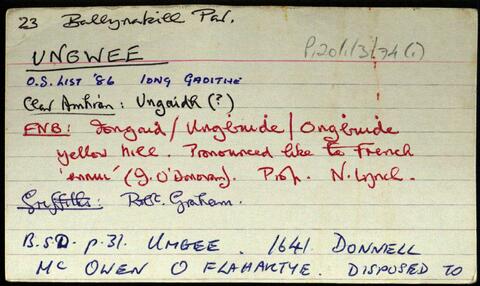 23 Ballynakill Par.
UNGWEE P20/1/3/74(i)
O.S. LIST '86 IONG GAOITHE
Clár Amhrán: Ungaidh (?)
FNB: Iongaid / Ungbuide / Ongbuide
yellow hill. Pronounced like to French
'ennui' (J. O'Donovan). Prop. N. Lynch.
Griffiths: Robt. Graham.
B.S.D. p. 31. UMGEE. 1641. DONNELL
Mc OWEN O FLAHARTYE. DISPOSED TO